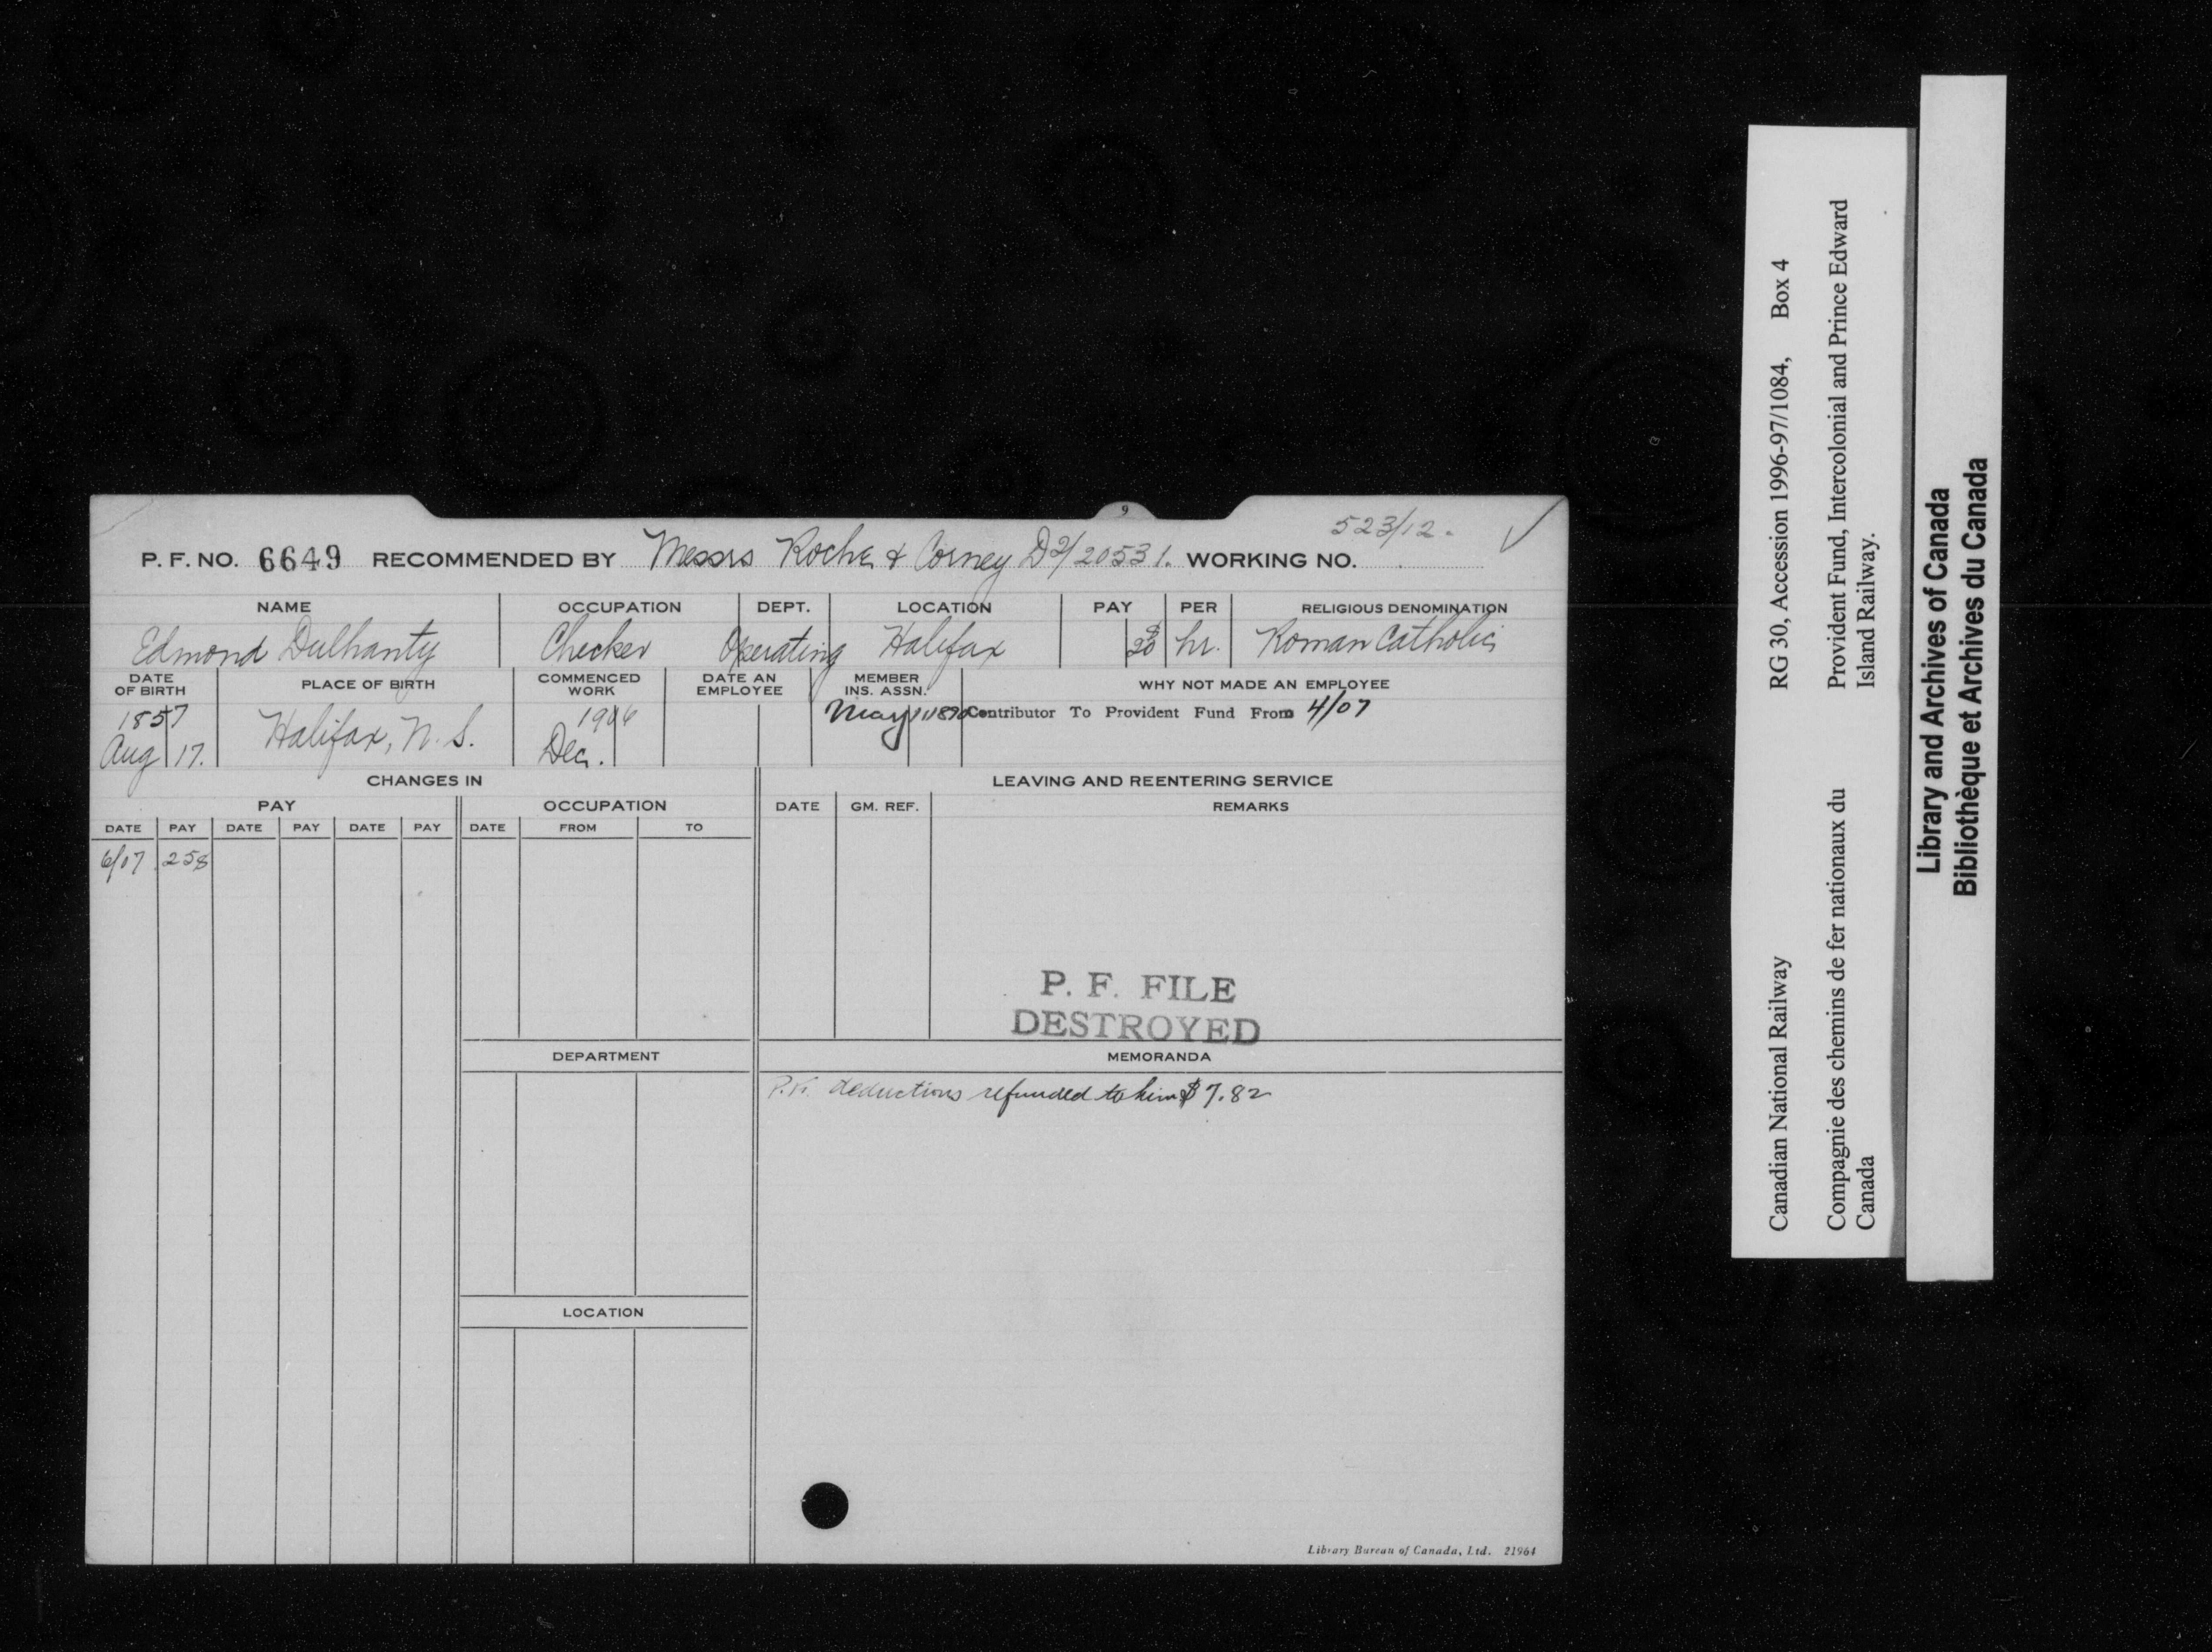 9
523/12. ✓
P. F. NO. 6649 RECOMMENDED BY Messrs Roche & Corney D2/20531. WORKING NO.
NAME OCCUPATION DEPT. LOCATION PAY PER RELIGIOUS DENOMINATION
Edmond Dulhanty Checker Operating Halifax 20 hr. Roman Catholic
DATE OF BIRTH PLACE OF BIRTH COMMENCED WORK DATE AN EMPLOYEE MEMBER INS. ASSN. WHY NOT MADE AN EMPLOYEE
1857 1906 May 1890 Contributor To Provident Fund From 4/07
Aug 17. Halifax, N. S. Dec.
CHANGES IN LEAVING AND REENTERING SERVICE
PAY OCCUPATION DATE GM. REF. REMARKS
DATE PAY DATE PAY DATE PAY DATE FROM TO
6/07 258
P. F. FILE
DESTROYED
DEPARTMENT MEMORANDA
P.F. deductions refunded to him $7.82
LOCATION
Library Bureau of Canada, Ltd. 21964
Canadian National Railway RG 30, Accession 1996-97/1084, Box 4
Compagnie des chemins de fer nationaux du Provident Fund, Intercolonial and Prince Edward
Canada Island Railway.
Library and Archives of Canada
Bibliothèque et Archives du Canada